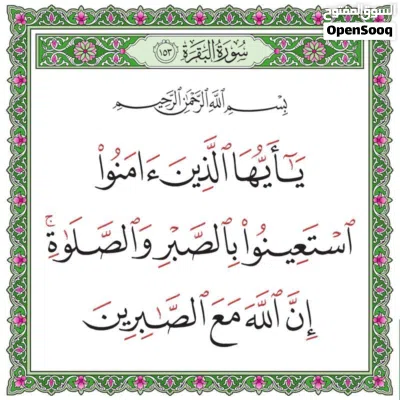 السوق المفتوح
OpenSooq
سُورَةُ البَقَرَةِ ١٥٣
بِسْمِ ٱللَّهِ ٱلرَّحْمَٰنِ ٱلرَّحِيمِ
يَـٰٓأَيُّهَا ٱلَّذِينَ ءَامَنُوا۟
ٱسْتَعِينُوا۟ بِٱلصَّبْرِ وَٱلصَّلَوٰةِ ۚ
إِنَّ ٱللَّهَ مَعَ ٱلصَّـٰبِرِينَ